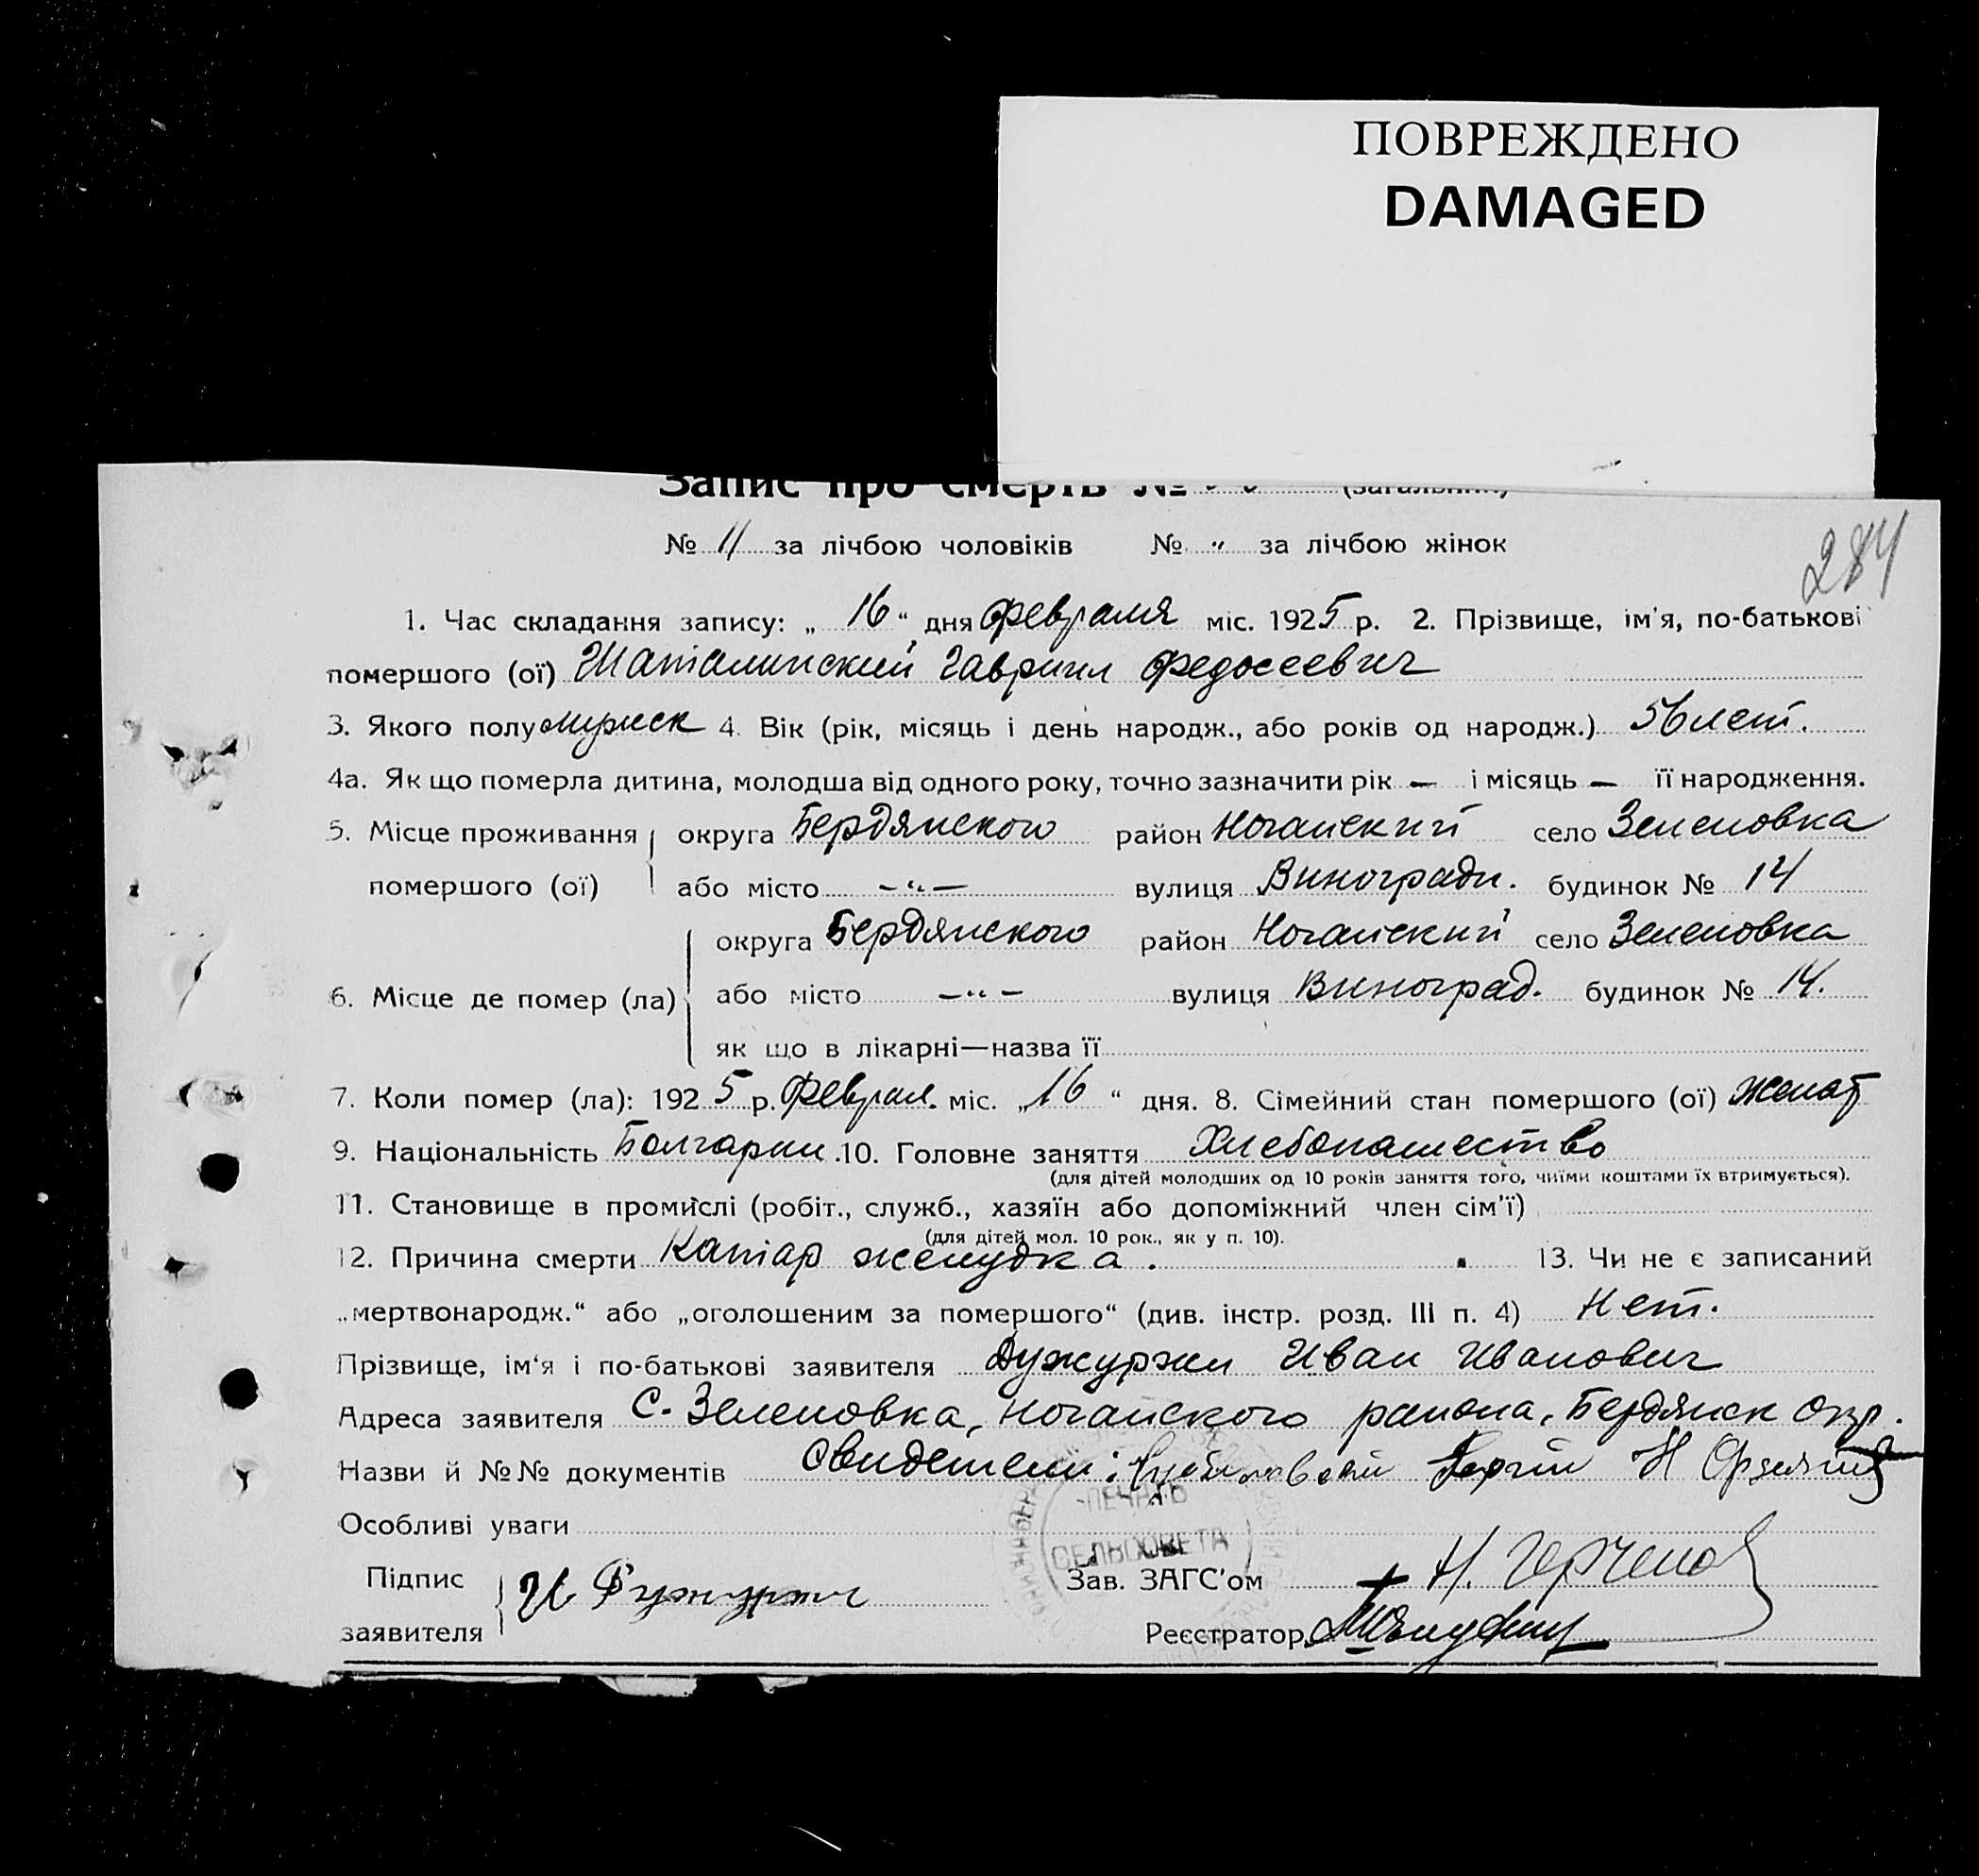 ПОВРЕЖДЕНО
DAMAGED
Запис про смерть № (загальний)
№ 11 за лічбою чоловіків № " за лічбою жінок
284
1. Час складання запису: „ 16 “ дня февраля міс. 1925 р. 2. Прізвище, ім'я, по-батькові
помершого (ої) Шаталинский Гавриил Федосеевич
3. Якого полу мужск 4. Вік (рік, місяць і день народж., або років од народж.) 56 лет.
4а. Як що померла дитина, молодша від одного року, точно зазначити рік — і місяць — її народження.
5. Місце проживання округа Бердянского район Ногайский село Зеленовка
помершого (ої) або місто —"— вулиця Виноградн. будинок № 14
округа Бердянского район Ногайский село Зеленовка
6. Місце де помер (ла) або місто —"— вулиця Виноград. будинок № 14.
як що в лікарні—назва її
7. Коли помер (ла): 1925 р. Феврал. міс. „16 “ дня. 8. Сімейний стан помершого (ої) женат
9. Національність Болгарин. 10. Головне заняття Хлебопашество
(для дітей молодших од 10 років заняття того, чиїми коштами їх втримується).
11. Становище в промислі (робіт., служб., хазяїн або допоміжний член сім'ї)
(для дітей мол. 10 рок., як у п. 10).
12. Причина смерти Катар желудка. 13. Чи не є записаний
„мертвонародж.“ або „оголошеним за помершого“ (див. інстр. розд. III п. 4) Нет.
Прізвище, ім‘я і по-батькові заявителя Дужуржи Иван Иванович
Адреса заявителя С. Зеленовка, Ногайского района, Бердянск окр.
Назви й №№ документів Свидетели:
ПЕЧАТЬ
Особливі уваги
СЕЛЬСОВЕТА
Підпис Зав. ЗАГС'ом
заявителя Реєстратор